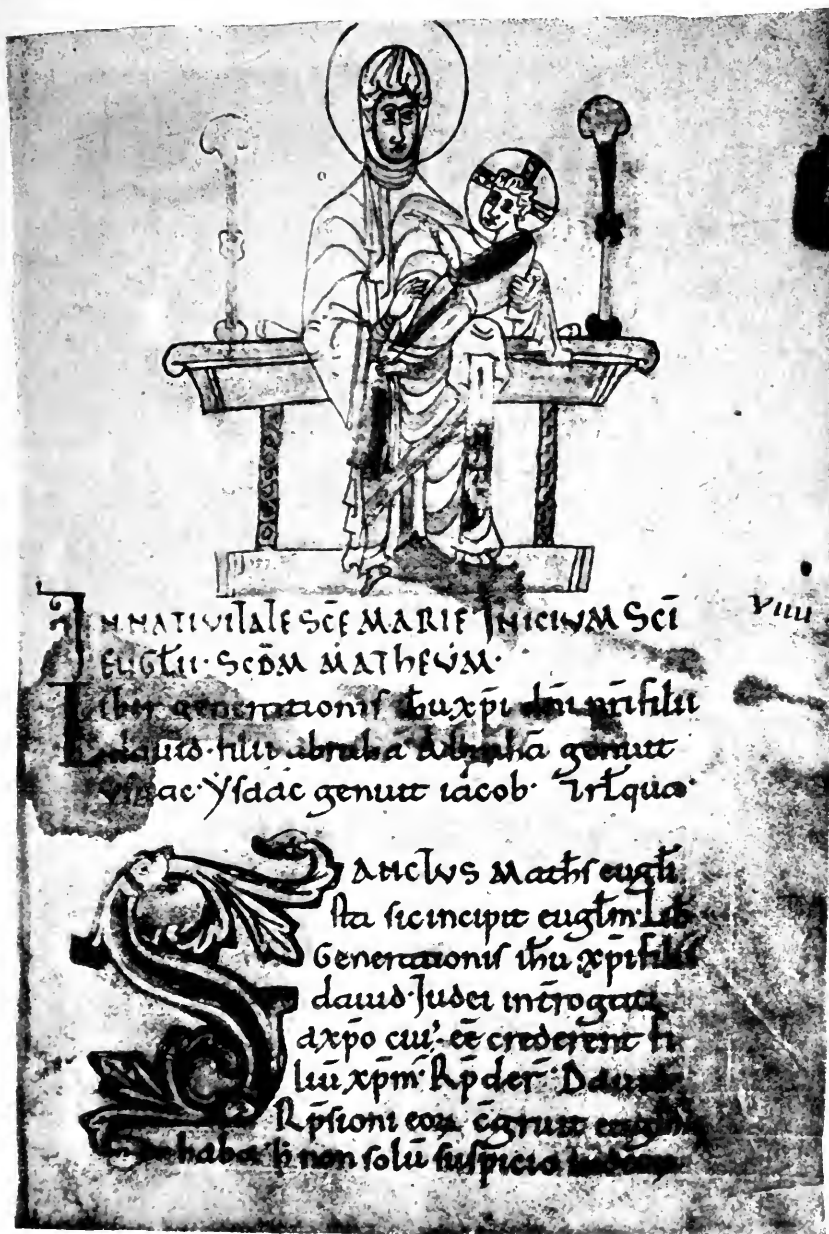 IN NATIVITATE SCĒ MARIE INICIUM SCĪ
EUGŁII · SCDM MATHEUM ·
Liber generationis ihu xp̄i dn̄i nr̄i filii
dauid · filii abrahā Abrahā genuit
ysaac · Ysaac genuit iacob · 
SANCTUS Maths eugłi
sta sic incipit eugłm · Lib
Generationis ihu xp̄i filii
dauid · Iudei introgati
a xp̄o cui' · eē crederent fi
liū xp̄m · Rp̄der̄ · Dauid
Rp̄sioni eoꝝ c̄gruit
habā non solū suspicio
VIIII